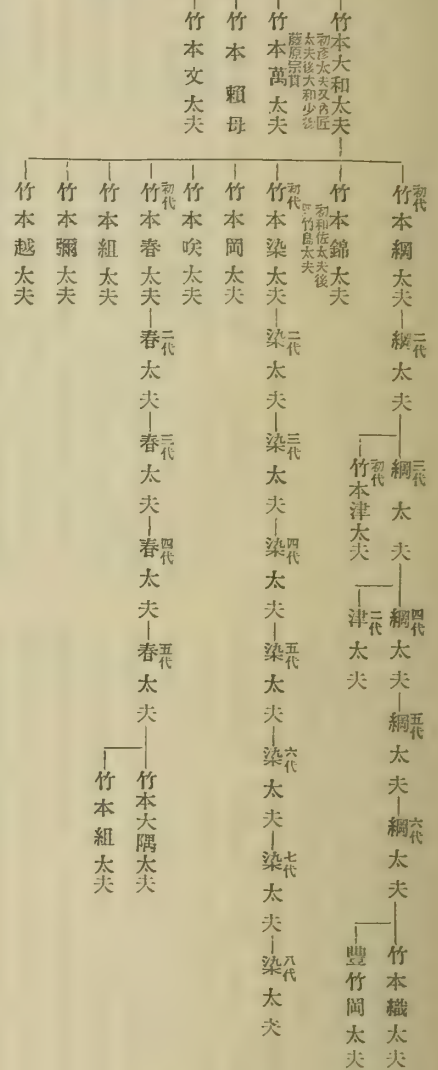 竹本大和太夫
初彥太夫又內匠
太夫後大和少掾
藤原宗貫
竹本萬太夫
竹本賴母
竹本文太夫
初代
竹本綱太夫
二代
綱太夫
三代
綱太夫
四代
綱太夫
五代
綱太夫
六代
綱太夫
竹本織太夫
豐竹岡太夫
初代
竹本津太夫
二代
津太夫
竹本錦太夫
初和佐太夫後
竹島太夫
初代
竹本染太夫
二代
染太夫
三代
染太夫
四代
染太夫
五代
染太夫
六代
染太夫
七代
染太夫
八代
染太夫
竹本岡太夫
竹本咲太夫
初代
竹本春太夫
二代
春太夫
三代
春太夫
四代
春太夫
五代
春太夫
竹本大隅太夫
竹本組太夫
竹本組太夫
竹本彌太夫
竹本越太夫